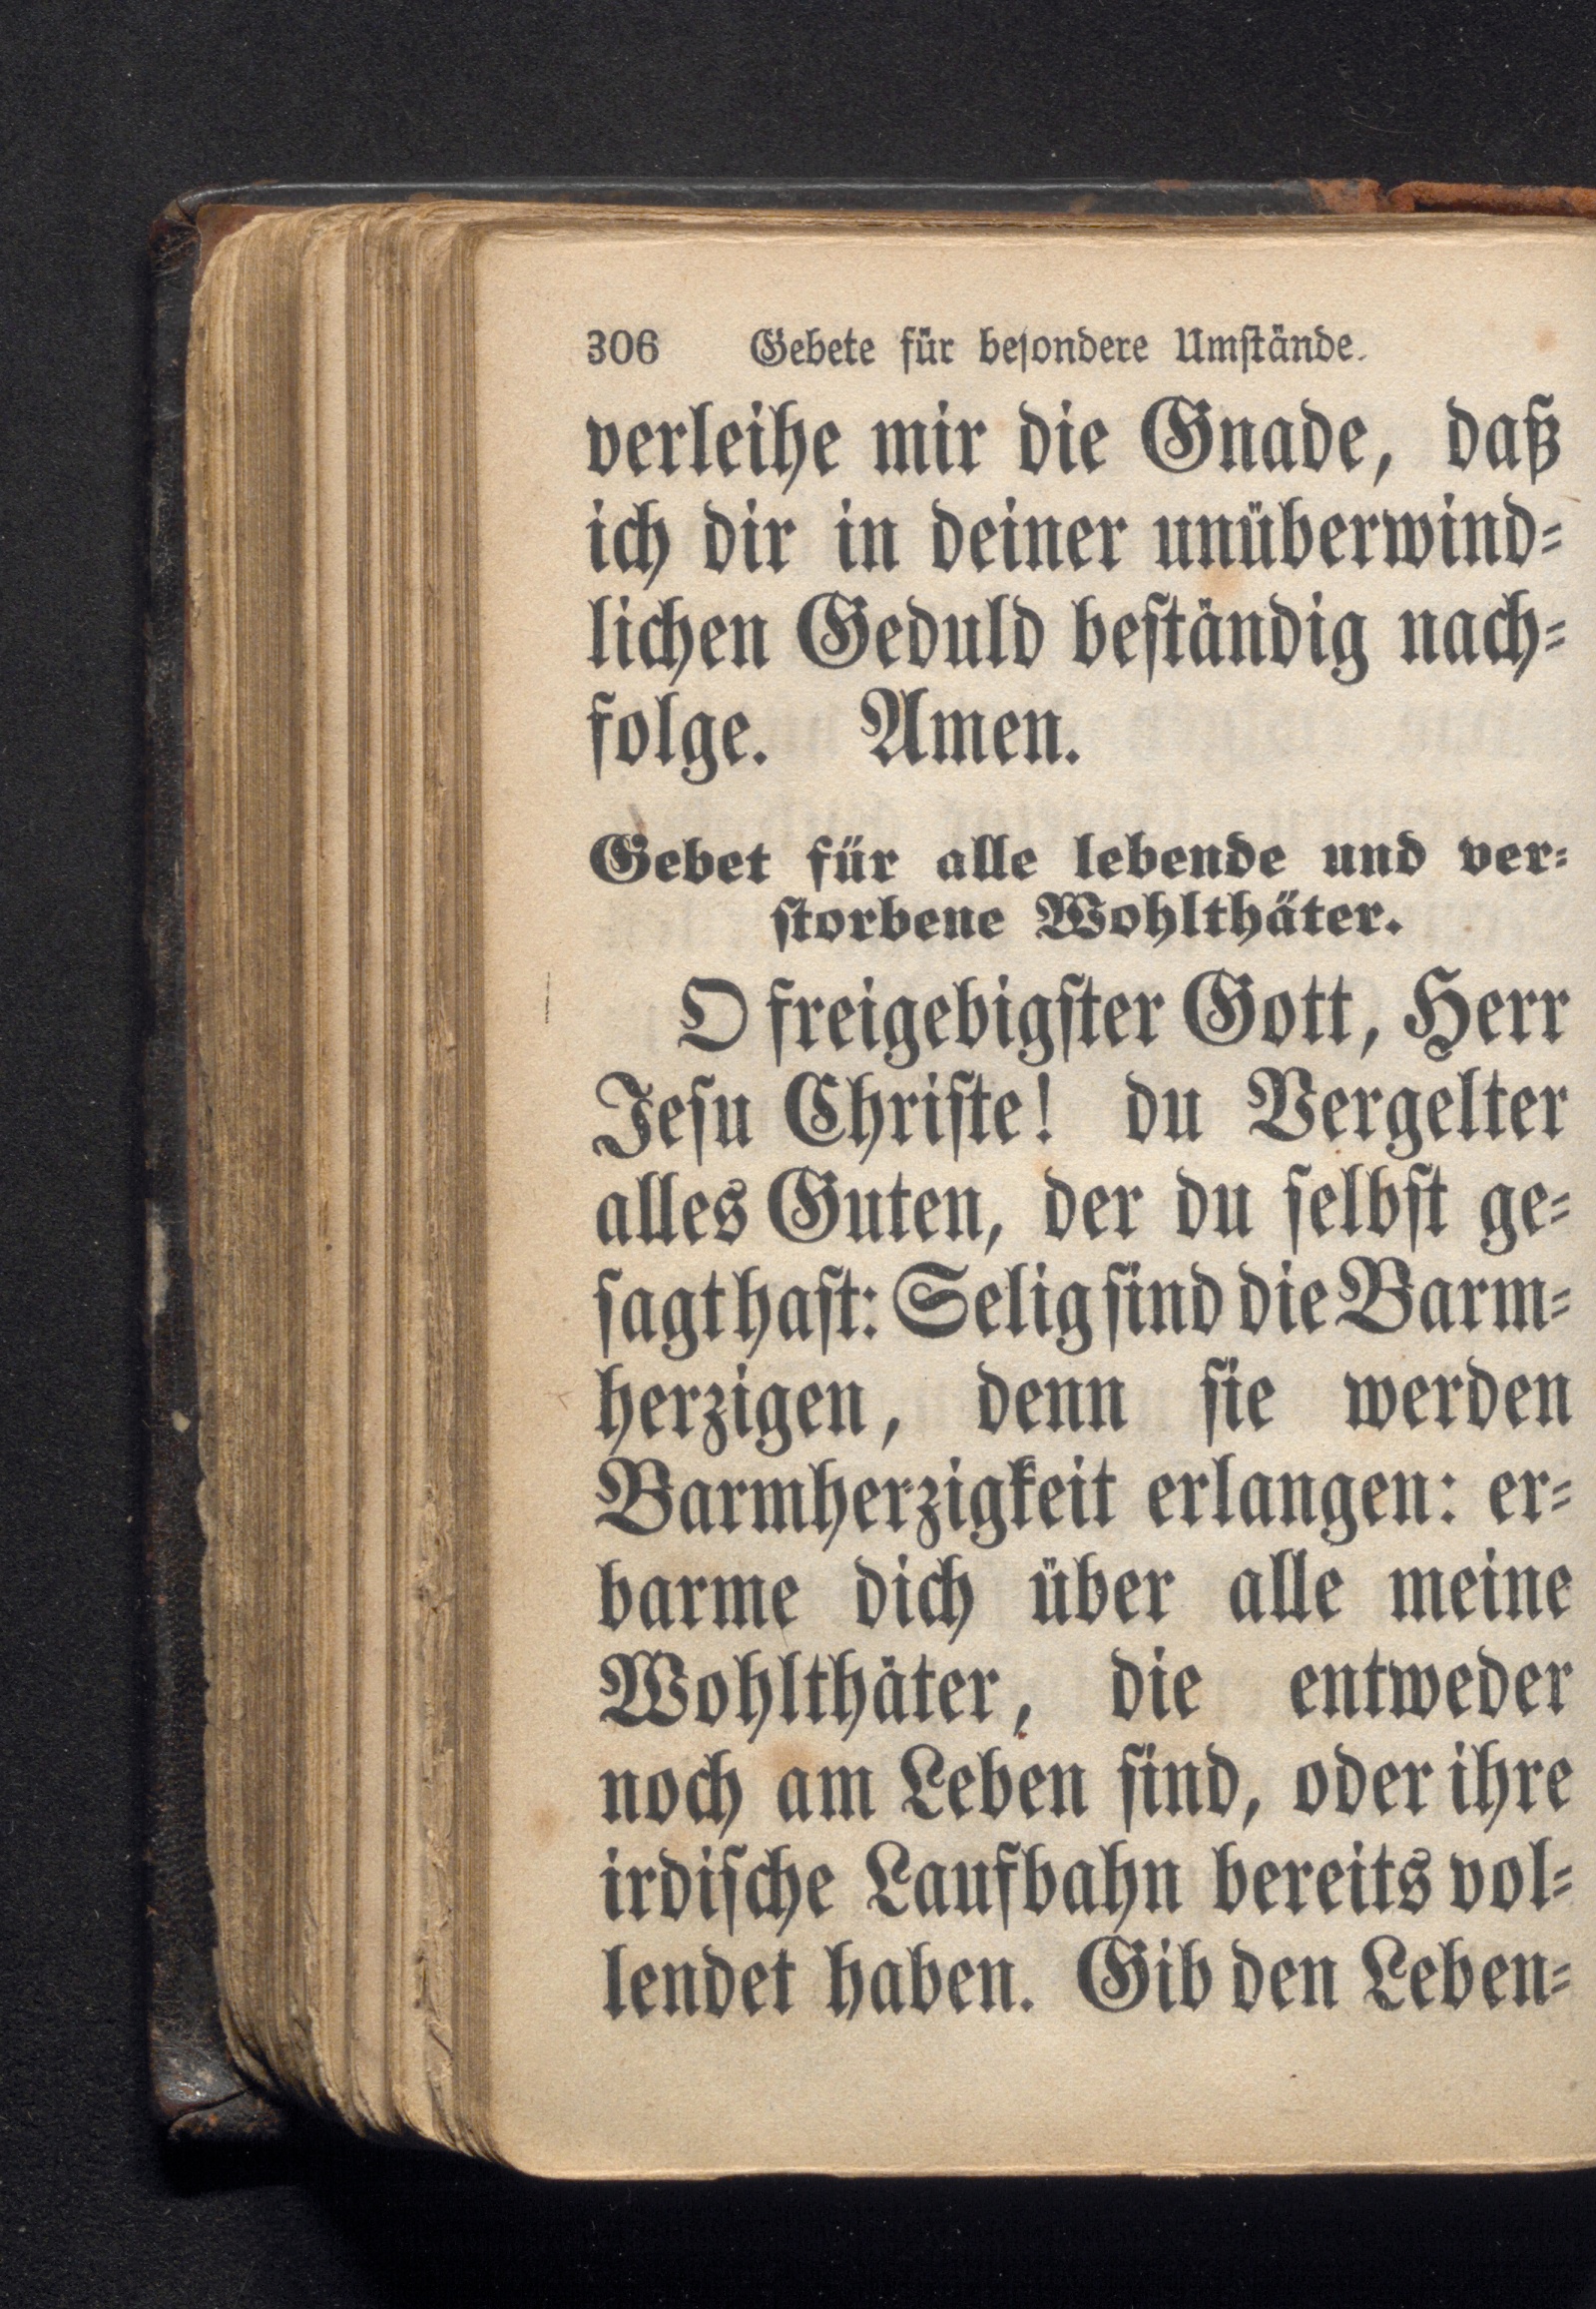 306 Gebete für besondere Umstände.
verleihe mir die Gnade, daß
ich dir in deiner unüberwind-
lichen Geduld beständig nach-
folge. Amen.
Gebet für alle lebende und ver-
storbene Wohlthäter.
O freigebigster Gott, Herr
Jesu Christe! du Vergelter
alles Guten, der du selbst ge-
sagt hast: Selig sind die Barm-
herzigen, denn sie werden
Barmherzigkeit erlangen: er-
barme dich über alle meine
Wohlthäter, die entweder
noch am Leben sind, oder ihre
irdische Laufbahn bereits vol-
lendet haben. Gib den Leben-